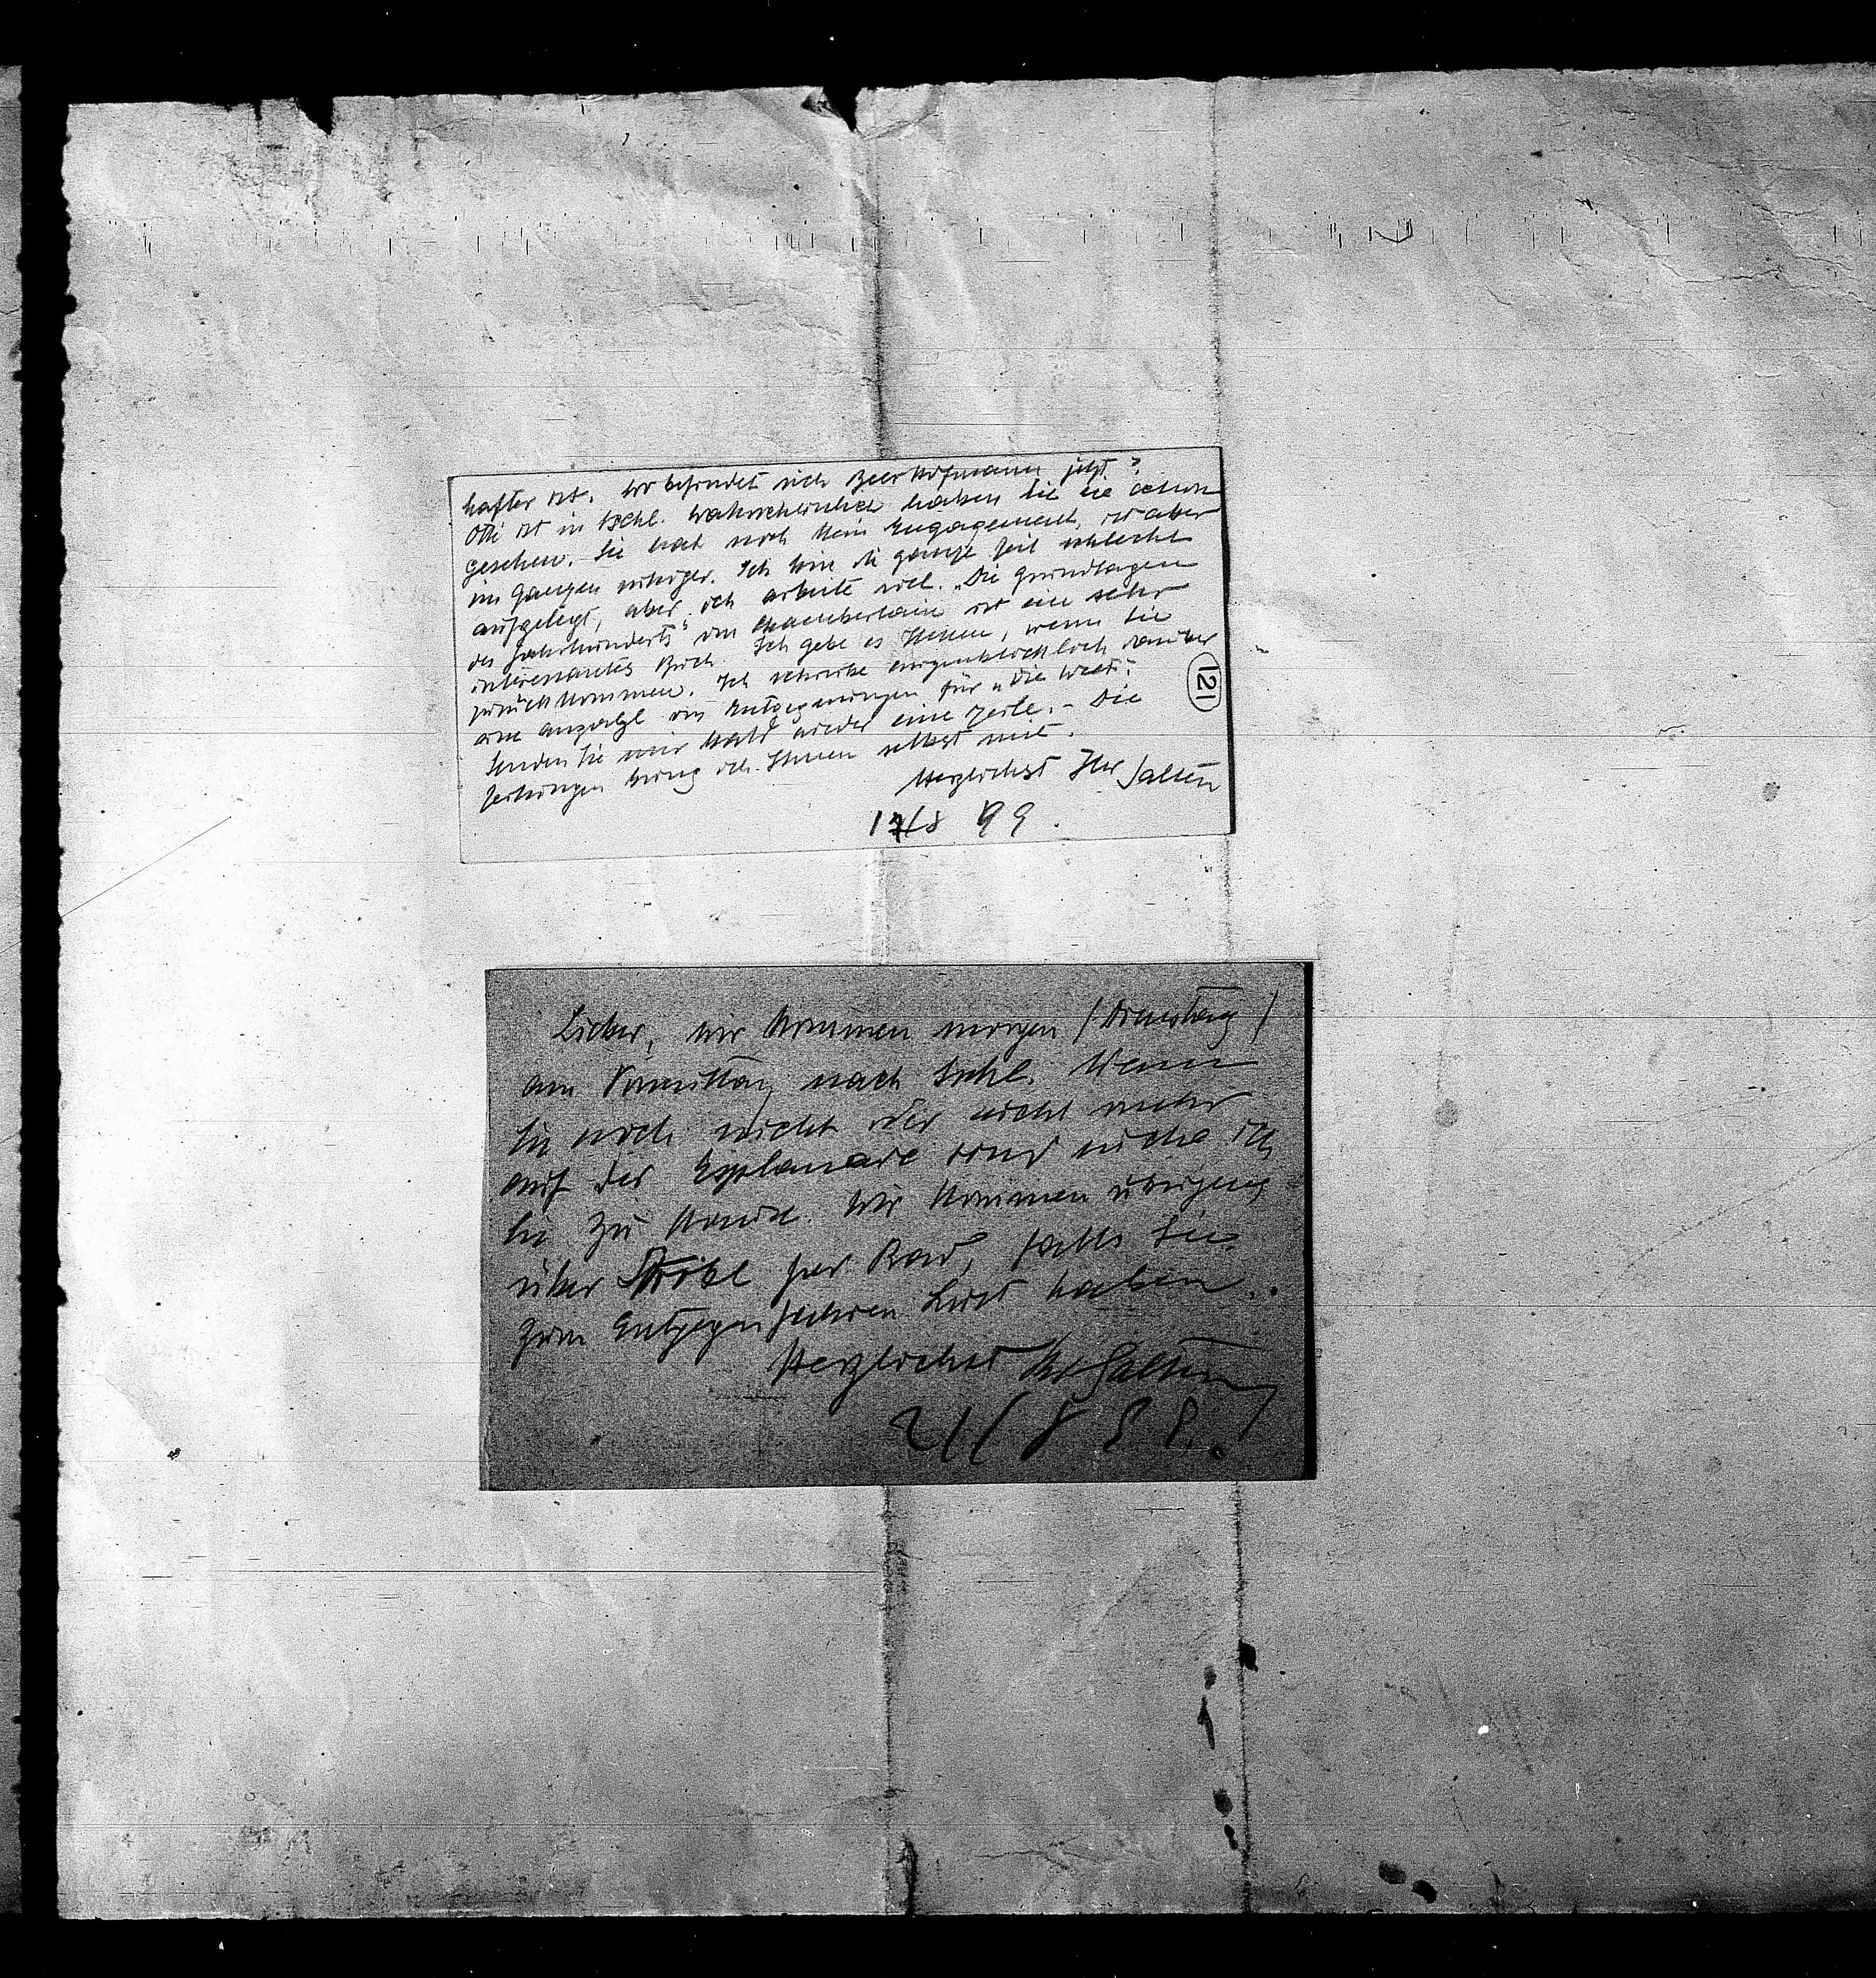 hafter ist. Wo befindet sich Beer Hofmann jetzt?
Otti ist in Ischl. Wahrscheinlich haben Sie sie schon
gesehen. Sie hat noch kein Engagement, ist aber
im Ganzen ruhiger. Ich bin die ganze Zeit schlecht
aufgelegt, aber ich arbeite viel. „Die Grundlagen
des Jahrhunderts" von Chamberlain ist ein sehr
interessantes Buch. Ich gebe es Ihnen, wenn Sie
zurückkommen. Ich schreibe augenblicklich darüber
eine Anzahl von Entgegnungen für „Die Welt".
Senden Sie mir bald wieder eine Zeile. – Die
Zeitungen bring ich Ihnen selbst mit.
Herzlichst Ihr Salten
17/8 99.
121
Lieber, wir kommen morgen (Dienstag)
am Vormittag nach Ischl. Wenn
Sie noch nicht oder nicht mehr
auf der Esplanade sind suche ich
Sie zu Hause. Wir kommen übrigens
über Strobl per Rad, falls Sie
zum Entgegenfahren Lust haben.
Herzlichst Ihr Salten
21/8 99.